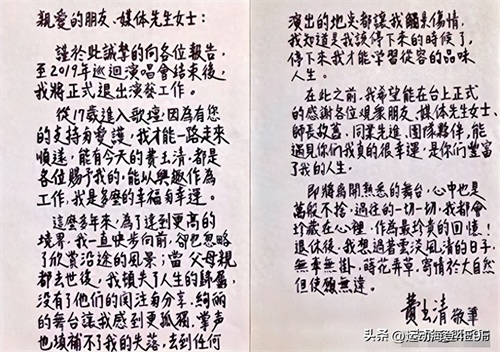 親愛的朋友、媒体先生女士：
謹於此誠摯的向各位報告，
至2019年巡迴演唱會結束後，
我將正式退出演藝工作。
從17歲進入歌壇，因為有您
的支持与愛護，我才能一路走來
順遂，能有今天的費玉清，都是
各位賜予我的，能以興趣作為
工作，我是多麼的幸福与幸運。
這麼多年來，為了達到更高的
境界，我一直快步向前，卻也忽略
了欣賞沿途的風景；當父母親
都去世後，我頓失了人生的歸屬，
沒有了他們的関注与分享，絢麗
的舞台讓我感到更孤獨，掌声
也填補不了我的失落，去到任何
演出的地点都讓我觸景傷情，
我知道是我該停下來的時候了，
停下來我才能學習從容的品味
人生。
在此之前，我希望能在台上正式
的感謝各位觀衆朋友、媒体先生女士、
師長故舊、同業先進、團隊夥伴，能
遇見你們我真的很幸運，是你們豐富
了我的人生。
即將離開熟悉的舞台，心中也是
萬般不捨，過往的一切一切，我都會
珍藏在心裡，作為最珍貴的回憶！
退休後，我想過著雲淡風清的日子，
無牽無掛，蒔花弄草，寄情於大自然
但使願無違。
費玉清 敬筆
头条 @运动海登哥日布